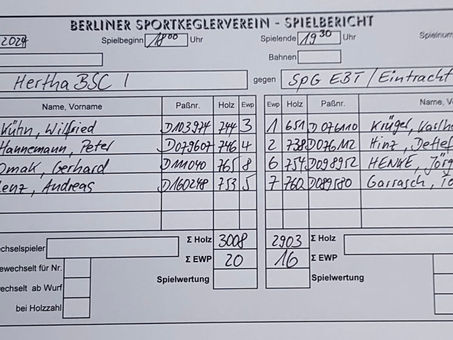 BERLINER SPORTKEGLERVEREIN - SPIELBERICHT
2024 Spielbeginn 18 00 Uhr Spielende 19 30 Uhr Spielnum
Bahnen
Hertha BSC I gegen SpG EBT / Eintracht
Name, Vorname Paßnr. Holz Ewp Ewp Holz Paßnr. Name, Vorname
Kühn, Wilfried D103974 744 3 1 651 D076110 Krügel, Karlhe
Hannemann, Peter D079607 746 4 2 738 D076112 Hinz, Detlef
Omak, Gerhard D111040 765 8 6 754 D098952 HENKE, Jörg
enz, Andreas D160248 753 5 7 760 D089580 Garrasch, To
echselspieler Σ Holz 3008 2903 Σ Holz
ewechselt für Nr. Σ EWP 20 16 Σ EWP
wechselt ab Wurf Spielwertung Spielwertung
bei Holzzahl